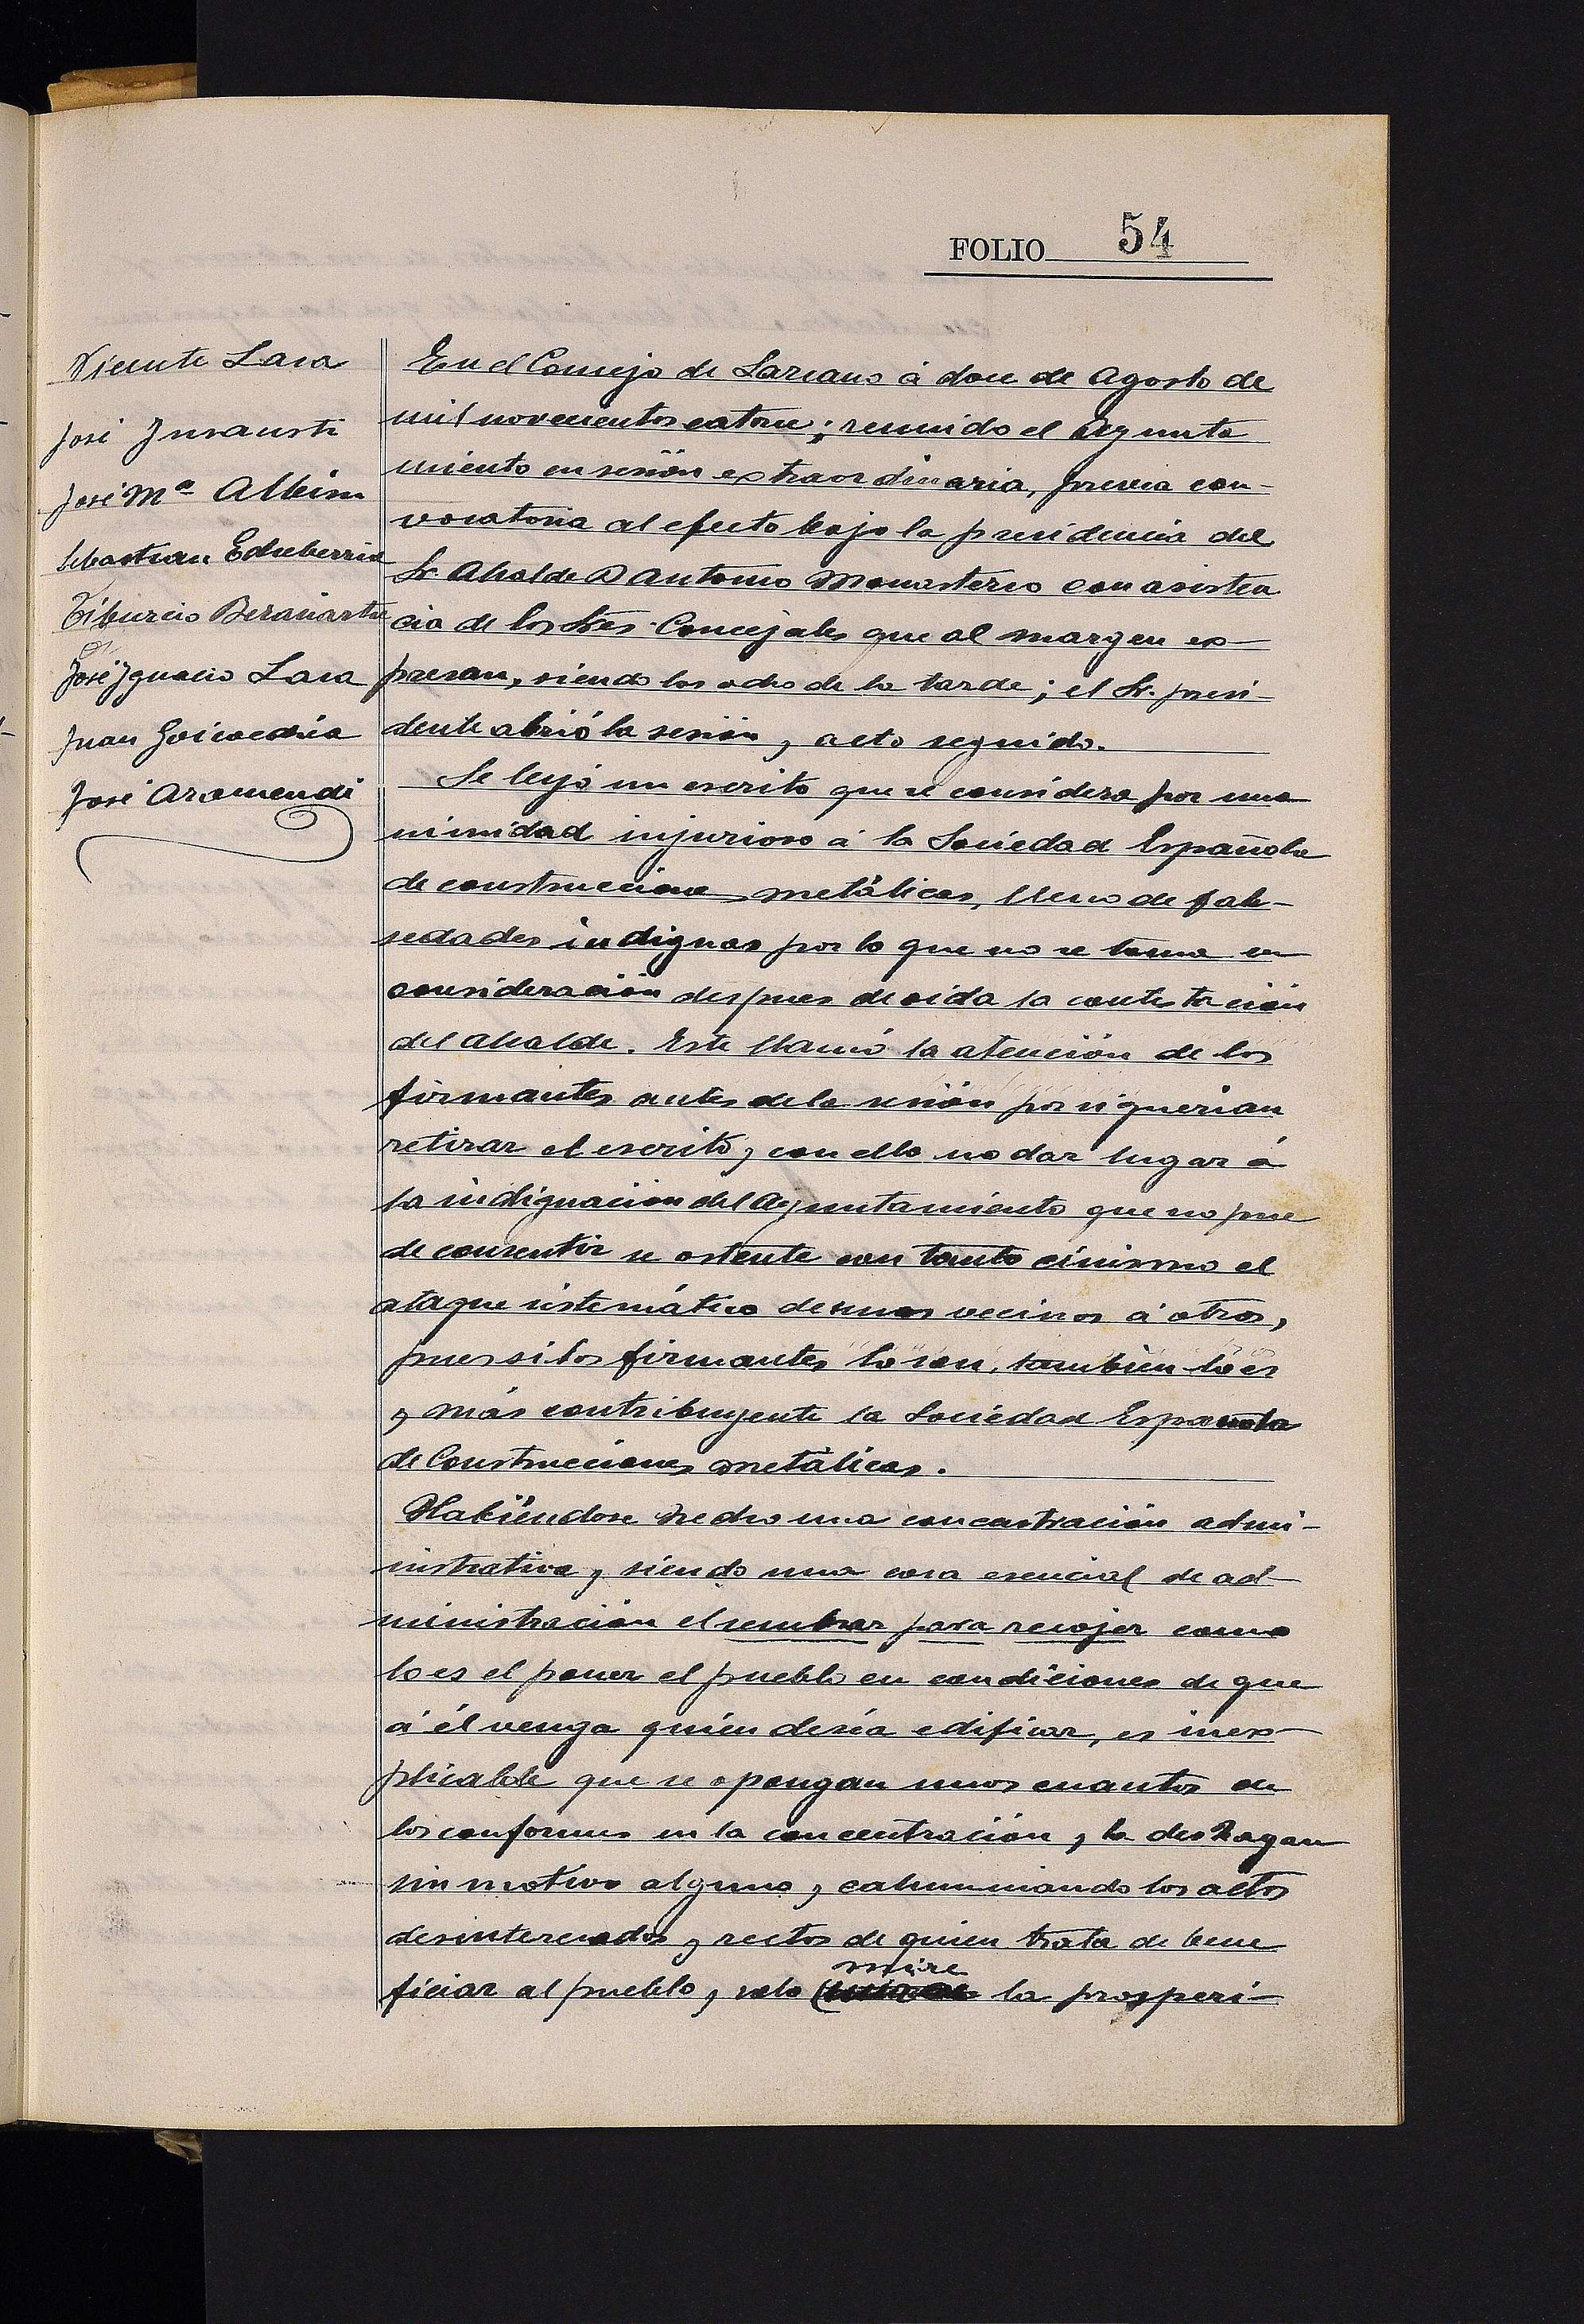 FOLIO 54
Vicente Lasa
José Insausti
José Mª Albisu
Sebastian Echeberria
Tiburcio Berasiartu
José Ignacio Lasa
Juan Goicoechea
José Aramendi
En el Concejo de Lazcano á doce de Agosto de
mil novecientos catorce; reunido el Ayunta
miento en sesión extraordinaria, previa con-
vocatoria al efecto bajo la presidencia del
Sr. Alcalde D Antonio Monasterio con asisten
cia de los Sres. Concejales que al margen ex-
presan, siendo las ocho de la tarde; el Sr. presi-
dente abrió la sesión y acto seguido.
Se leyó un escrito que se considera por una
nimidad injurioso á la Sociedad Española
de construcciones metálicas, lleno de fal-
sedades indignas por lo que no se toma en
consideración despues de oida la contestación
del alcalde. Este llamó la atención de los
firmantes antes de la sesión por si querian
retirar el escrito y con ello no dar lugar á
la indignación del Ayuntamiento que no pue
de consentir se ostente con tanto cinismo el
ataque sistemático de unos vecinos á otros,
pues si los firmantes lo son, también lo es
y más contribuyente la Sociedad Española
de Construcciones metálicas.
Habiéndose hecho una concentración admi-
nistrativa y siendo una cosa esencial de ad-
ministración el sembrar para recojer como
lo es el poner el pueblo en condiciones de que
á él venga quién desea edificar, es inex-
plicable que se opongan unos cuantos de
los conformes en la concentración y la deshagan
sin motivo alguno y calumniando los actos
desinteresados y rectos de quien trata de bene
ficiar al pueblo y solo mire la prosperi-